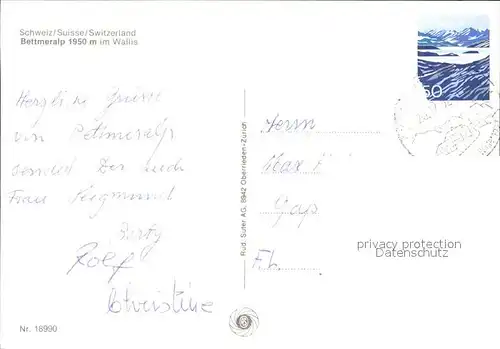 Schweiz/Suisse/Switzerland
Bettmeralp 1950 m im Wallis
50
Herzliche Grüsse
von Bettmeralp
sendet Dir auch
Frau
Rolf
Christine
Rud. Suter AG, 8942 Oberrieden-Zürich
Herrn
Max
privacy protection
Datenschutz
Nr. 18990